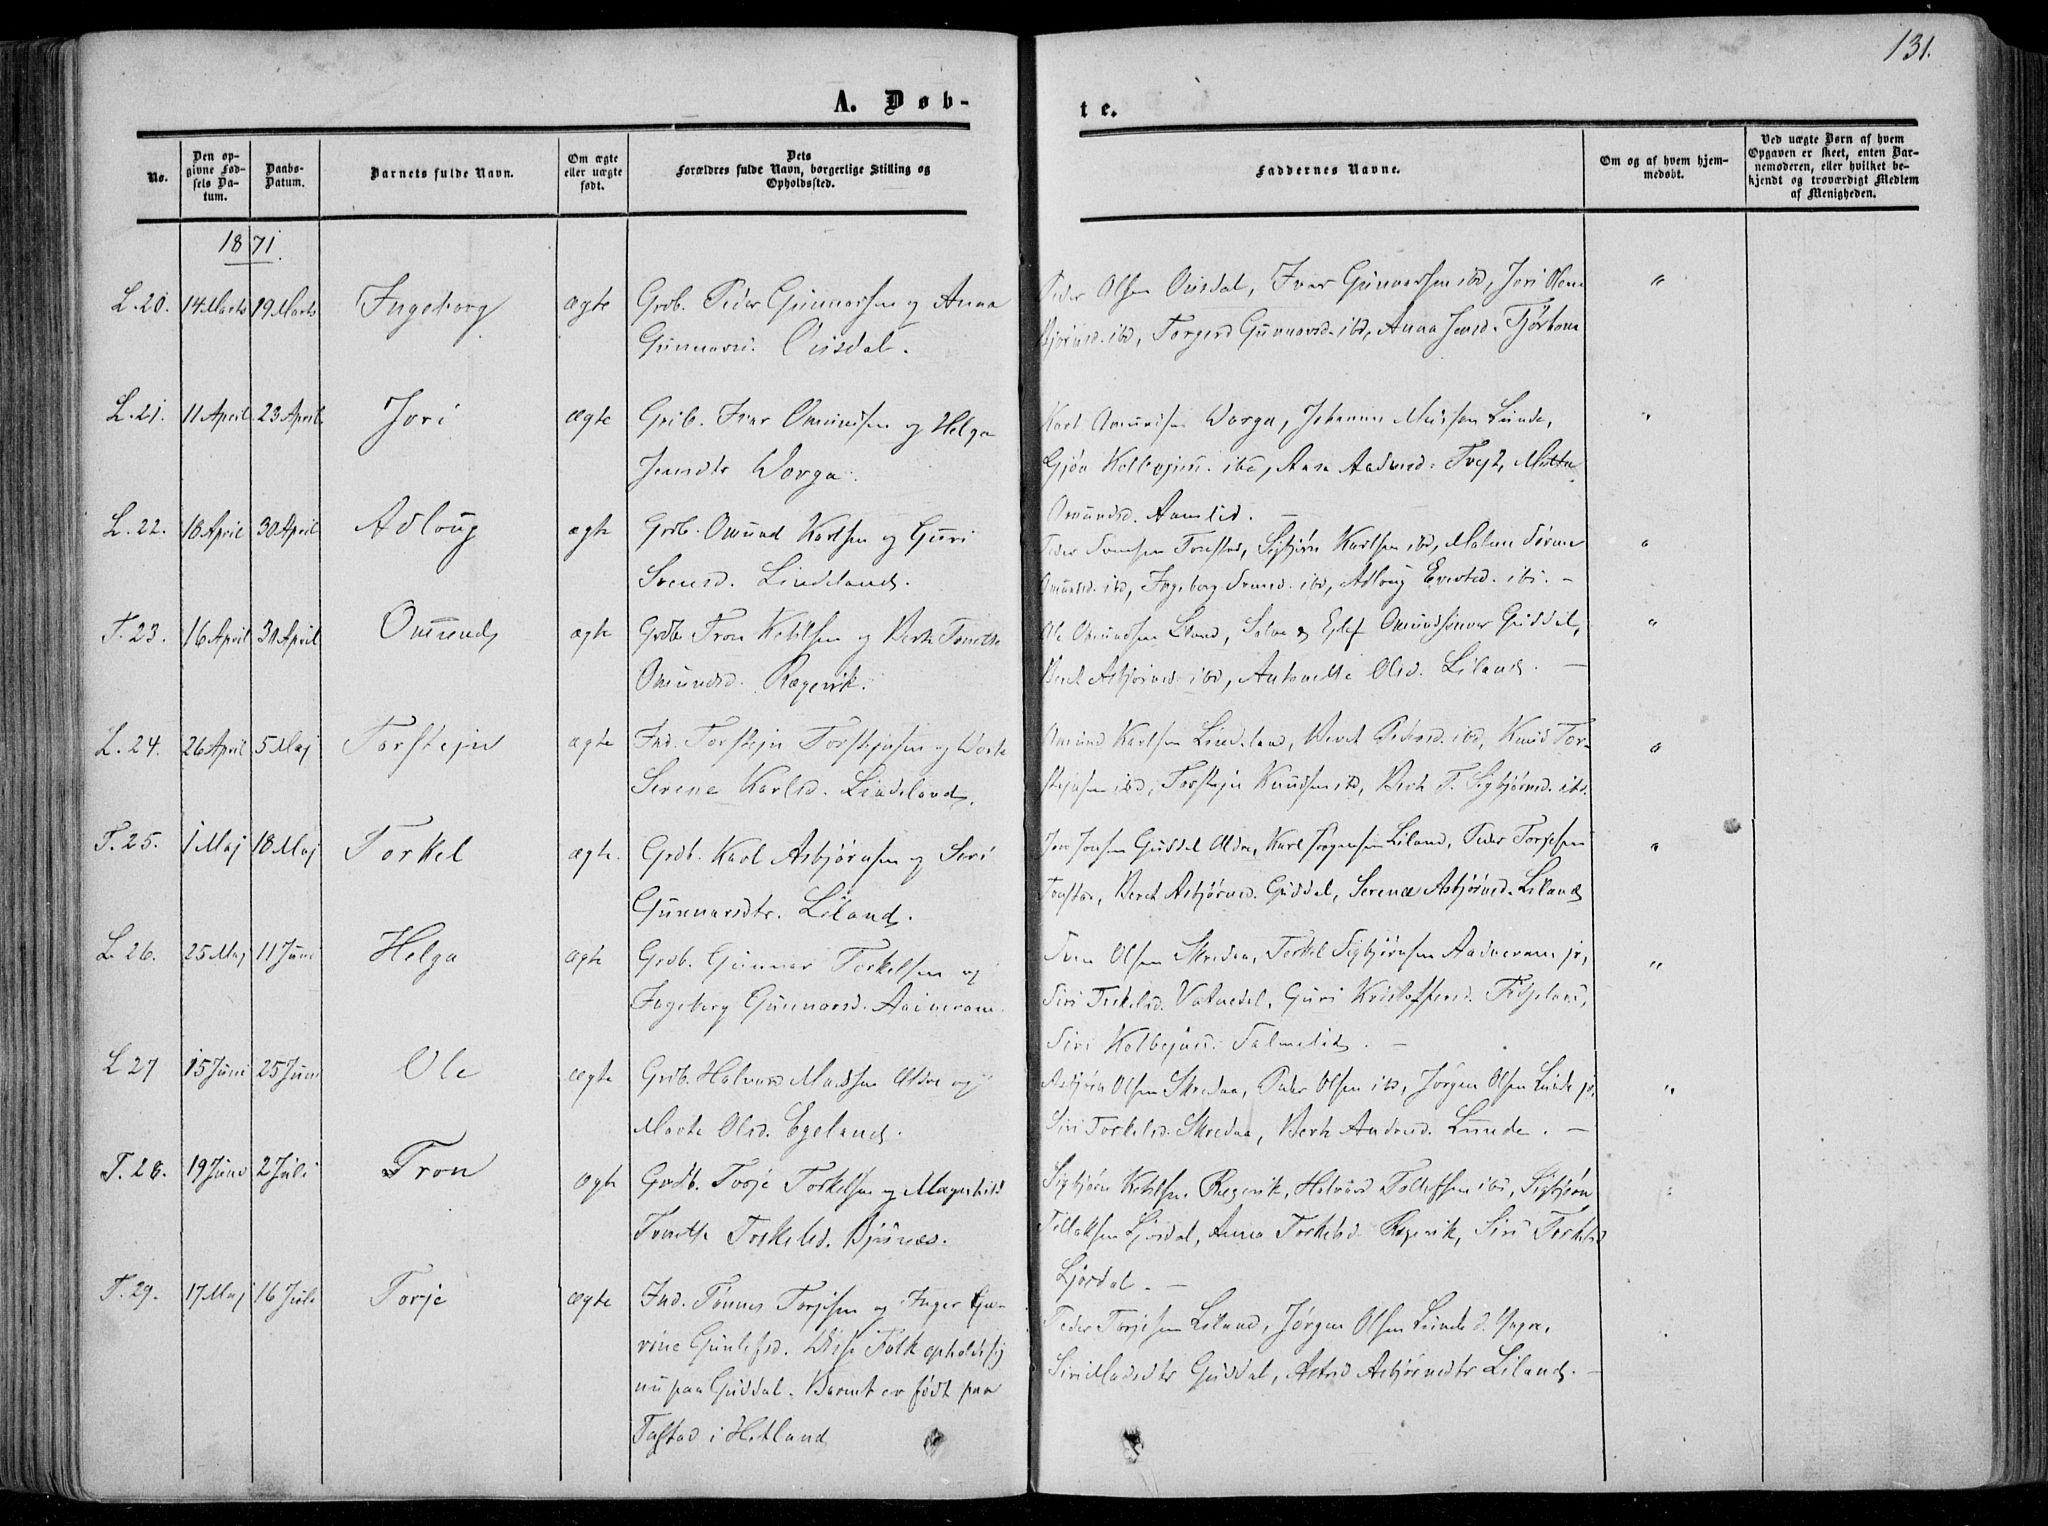 131.
A. Døb-
te.
No.
Den op-
givne Fød-
sels Da-
tum.
Daabs-
Datum.
Barnets fulde Navn.
Om ægte
eller uægte
født.
Dets
Forældres fulde Navn, borgerlige Stilling og
Opholdssted.
Faddernes Navne.
Om og af hvem hjem-
medøbt.
Ved uægte Børn af hvem
Opgaven er skeet, enten Bar-
nemoderen, eller hvilket be-
kjendt og troværdigt Medlem
af Menigheden.
1871.
L. 20. 14 Marts 19 Marts Ingeborg ægte Grdb. Peder Gunnarsen og Anna
Gunnarsd. Ousdal.
Peder Olsen Ousdal, Ivar Gunnarsen ibd, Jori Olene
Bjørnsd. ibd, Torgerd Gunnarsd. ibd, Anna Jensd. Tjørhom
"
L. 21. 11 April 23 April Jori ægte Grdb. Ivar Omundsen og Helga
Jensdtr Vorga.
Karl Omundsen Vorga, Johannes Madsen Lunde,
Gjøa Kolbejnsd. ibd, Anna Aadnesd. Tvejt, Mette
Omundsd. Aamlid. –
"
L. 22. 18 April 30 April Adloug ægte Grdb. Omund Karlsen og Guri
Svensd. Lindeland.
Peder Svensen Tonstad, Sigbjørn Karlsen ibd, Malene Sørine
Omundsd. ibd, Ingeborg Svensd. ibd, Adloug Evertsd. ibd. –
"
T. 23. 16 April 30 April Omund ægte Grdb. Tron Ketilsen og Berte Tonette
Omundsd. Rægevik.
Ole Omundsen Liland, Salve og Ejlef Omundsønner Guddal,
Beret Asbjørnsd. ibd, Antonette Olsd. Liland. –
"
L. 24. 26 April 5 Maj Torstejn ægte Ind. Torstejn Torstejnsen og Marte
Serine Karlsd. Lindeland.
Omund Karlsen Lindeland, Beret Pedersd. ibd, Knud Tor-
stejnsen ibd, Torstejn Knudsen ibd, Berte T. Sigbjørnsd. ibd.
"
T. 25. 1 Maj 18 Maj Torkel ægte. Grdb. Karl Asbjørnsen og Siri
Gunnarsdtr. Liland.
Jon Jonsen Guddal Ældre, Karl Jørgensen Liland, Peder Torjesen
Tonstad, Beret Asbjørnsd. Guddal, Serine Asbjørnsd. Liland
"
L. 26. 25 Maj 11 Juni Helga ægte Grdb. Gunnar Torkelsen og
Ingeborg Gunnarsd. Aadneram.
Sven Olsen Skredaa, Torkel Sigbjørnsen Aadneram jr,
Siri Torkelsd. Vatnedal, Guri Kristoffersd. Fidjeland,
Siri Kolbejnsd. Salmelid. –
"
L 27 15 Juni 25 Juni Ole ægte Grdb. Halvard Madsen Ældre og
Marte Olsd. Egeland.
Asbjørn Olsen Skredaa, Peder Olsen ibd, Jørgen Olsen Lunde jr,
Siri Torkelsd. Skredaa, Berte Andersd. Lunde. –
"
T. 28. 19 Juni 2 Juli Tron ægte Grdb. Torje Torkelsen og Magnhild
Tonette Torkelsd. Bjunes.
Sigbjørn Ketilsen Rægevik, Halvard Tollefsen ibd, Sigbjørn
Tollaksen Ljosdal, Anna Torkelsd. Rægevik, Siri Torkelsd
Ljosdal. –
"
T. 29. 17 Maj 16 Juli Torje ægte Ind. Tønnes Torjesen og Inger Ga-
rine Gunlefsd. Disse Folk opholde sig
nu paa Guddal. Barnet er født paa
Tastad i Hetland
Peder Torjesen Liland, Jørgen Olsen Lunde d. Yngre,
Siri Madsdtr Guddal, Astrid Asbjørnsdtr Liland. –